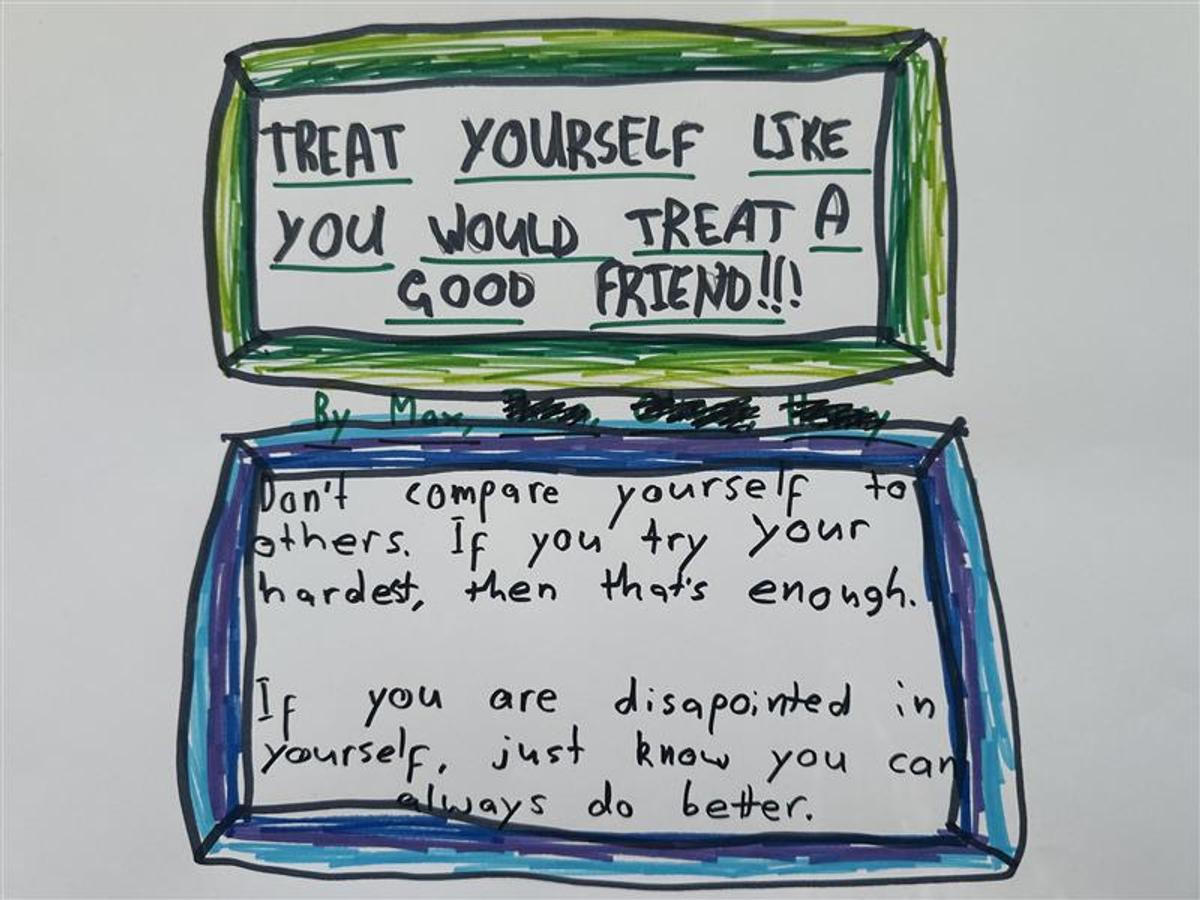 TREAT YOURSELF LIKE
YOU WOULD TREAT A
GOOD FRIEND!!!
By Max,
Don't compare yourself to
others. If you try your
hardest, then that's enough.
If you are disapointed in
yourself, just know you can
always do better.